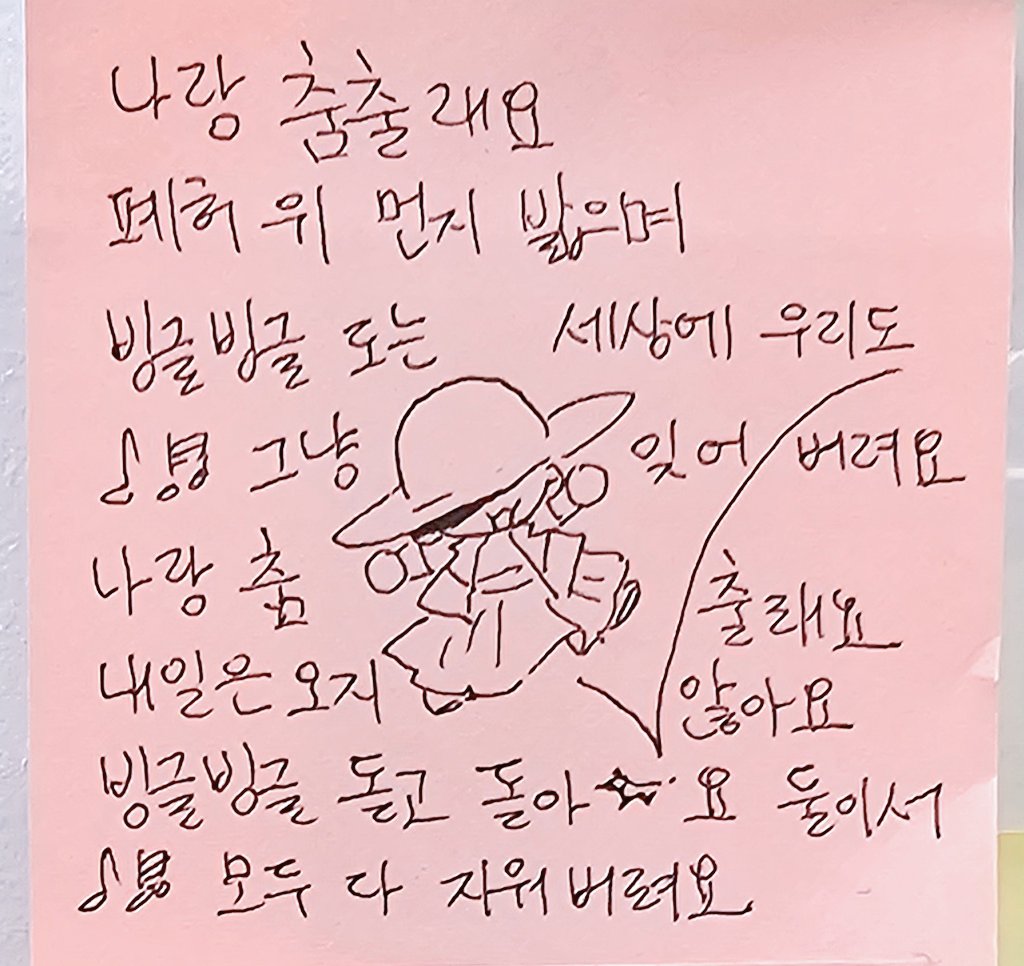 나랑 춤출래요
폐허 위 먼지 밟으며
빙글빙글 도는 세상에 우리도
그냥 잊어 버려요
나랑 춤 출래요
내일은 오지 않아요
빙글빙글 돌고 돌아요 둘이서
모두 다 지워버려요